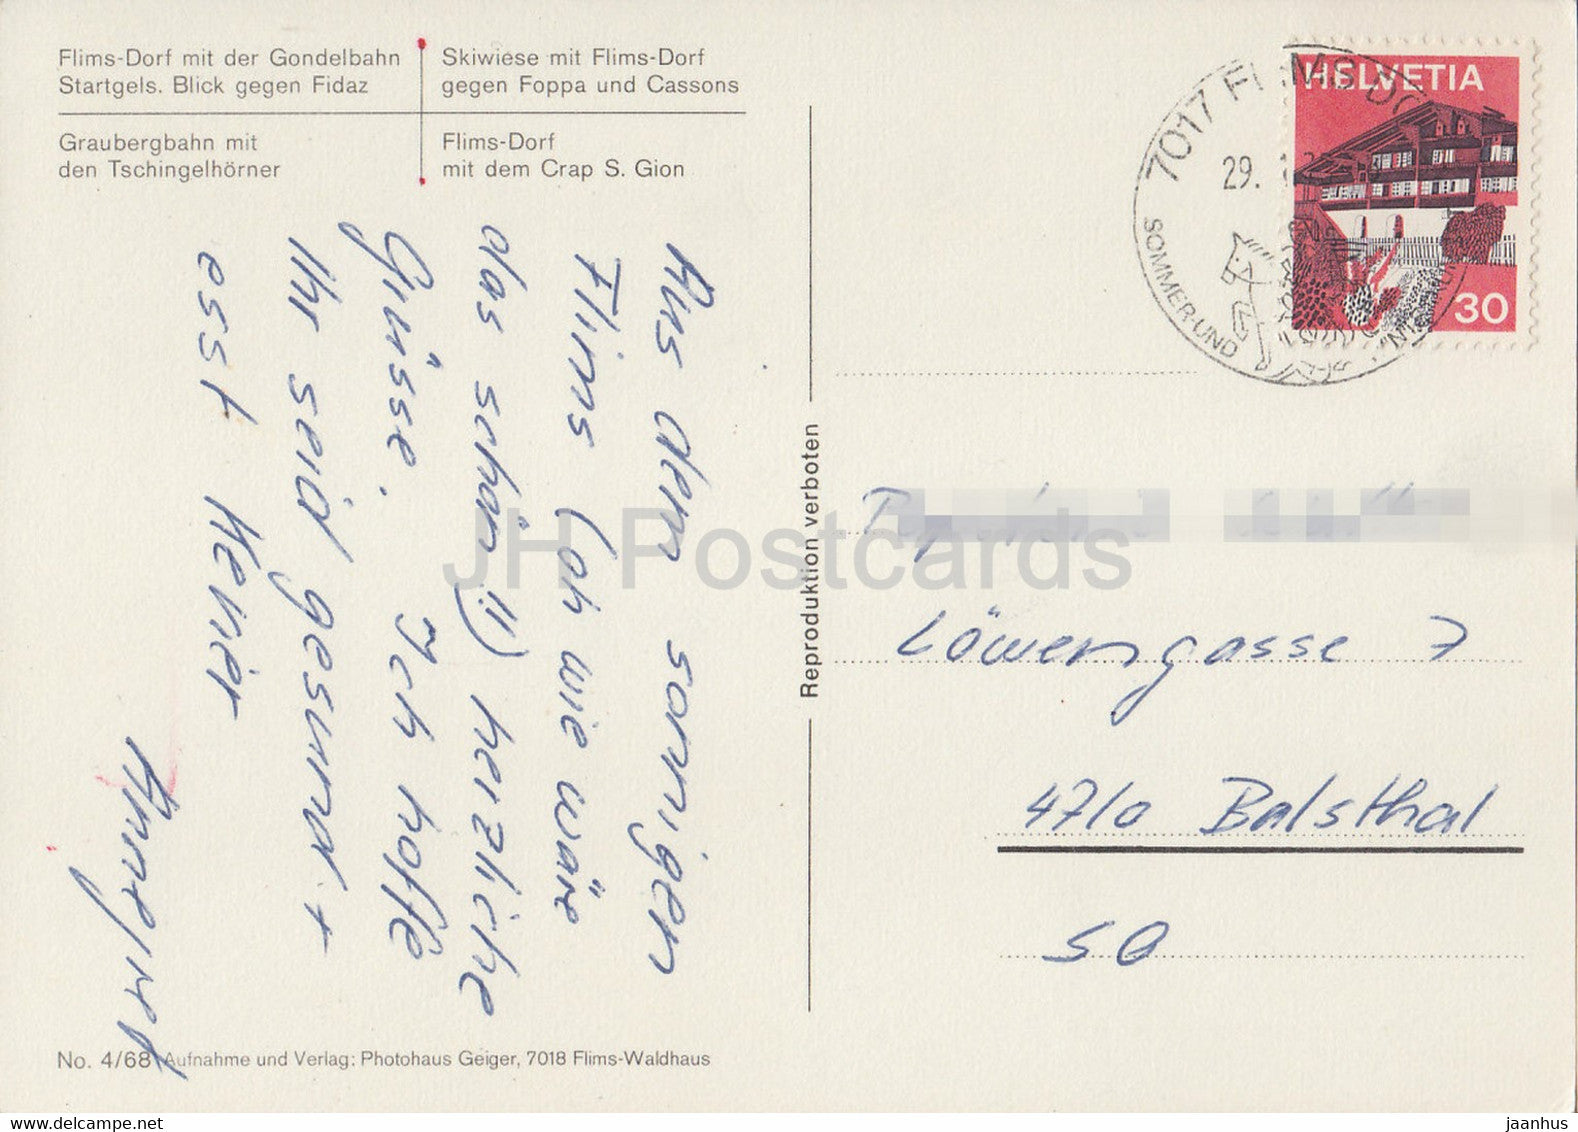 Flims-Dorf mit der Gondelbahn
Startgels. Blick gegen Fidaz
Skiwiese mit Flims-Dorf
gegen Foppa und Cassons
Graubergbahn mit
den Tschingelhörner
Flims-Dorf
mit dem Crap S. Gion
Aus dem sonnigen
Flims (oh wie wäre
das schön!!) herzliche
Grüsse. Ich hoffe
Ihr seid gesund +
esst
No. 4/68 Aufnahme und Verlag: Photohaus Geiger, 7018 Flims-Waldhaus
Reproduktion verboten
7017 FLIMS DO
29.
SOMMER-UND
HELVETIA
30
Löwengasse 7
4710 Balsthal
SO
JH Postcards
www.hippostcard.com
jaanhus